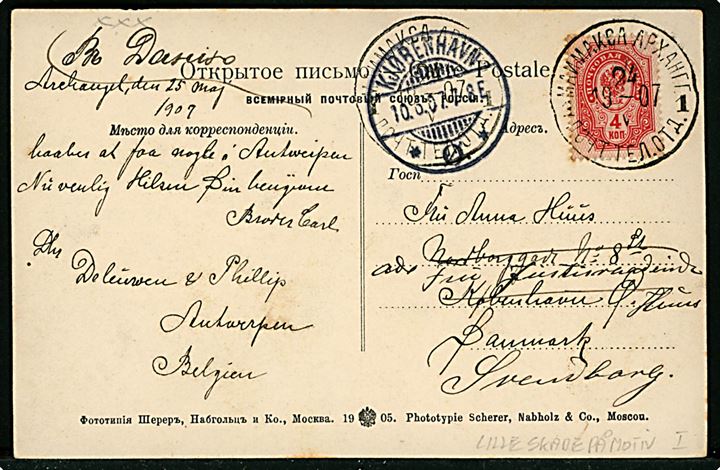 xxx
Открытое письмо. Postale.
Archangel, den 25 Maj
1907
ВСЕМІРНЫЙ ПОЧТОВЫЙ СОЮЗЪ. РОССІЯ.
Мѣсто для корреспонденціи.
Адресъ.
haaber at faa nogle i Antwerpen
Nu venlig Hilsen Din hengivne
Broder Carl
Deleuwen & Phillip
Antwerpen
Belgien
KJØBENHAVN
16.6.07
МАЙМАКСА АРХАНГ.
24
19 07
V
1
ПОЧТ. ТЕЛ. ОТД.
4
КОП.
Госп
Frk Anna Huus
Nordborggade No 8
Fru Justitsraadinde
Huus
København Ø.
Danmark
Svendborg.
Фототипія Шереръ, Набгольцъ и Ко., Москва. 19 05. Phototypie Scherer, Nabholz & Co., Moscou.
LILLE SKADE PÅ MOTIV I